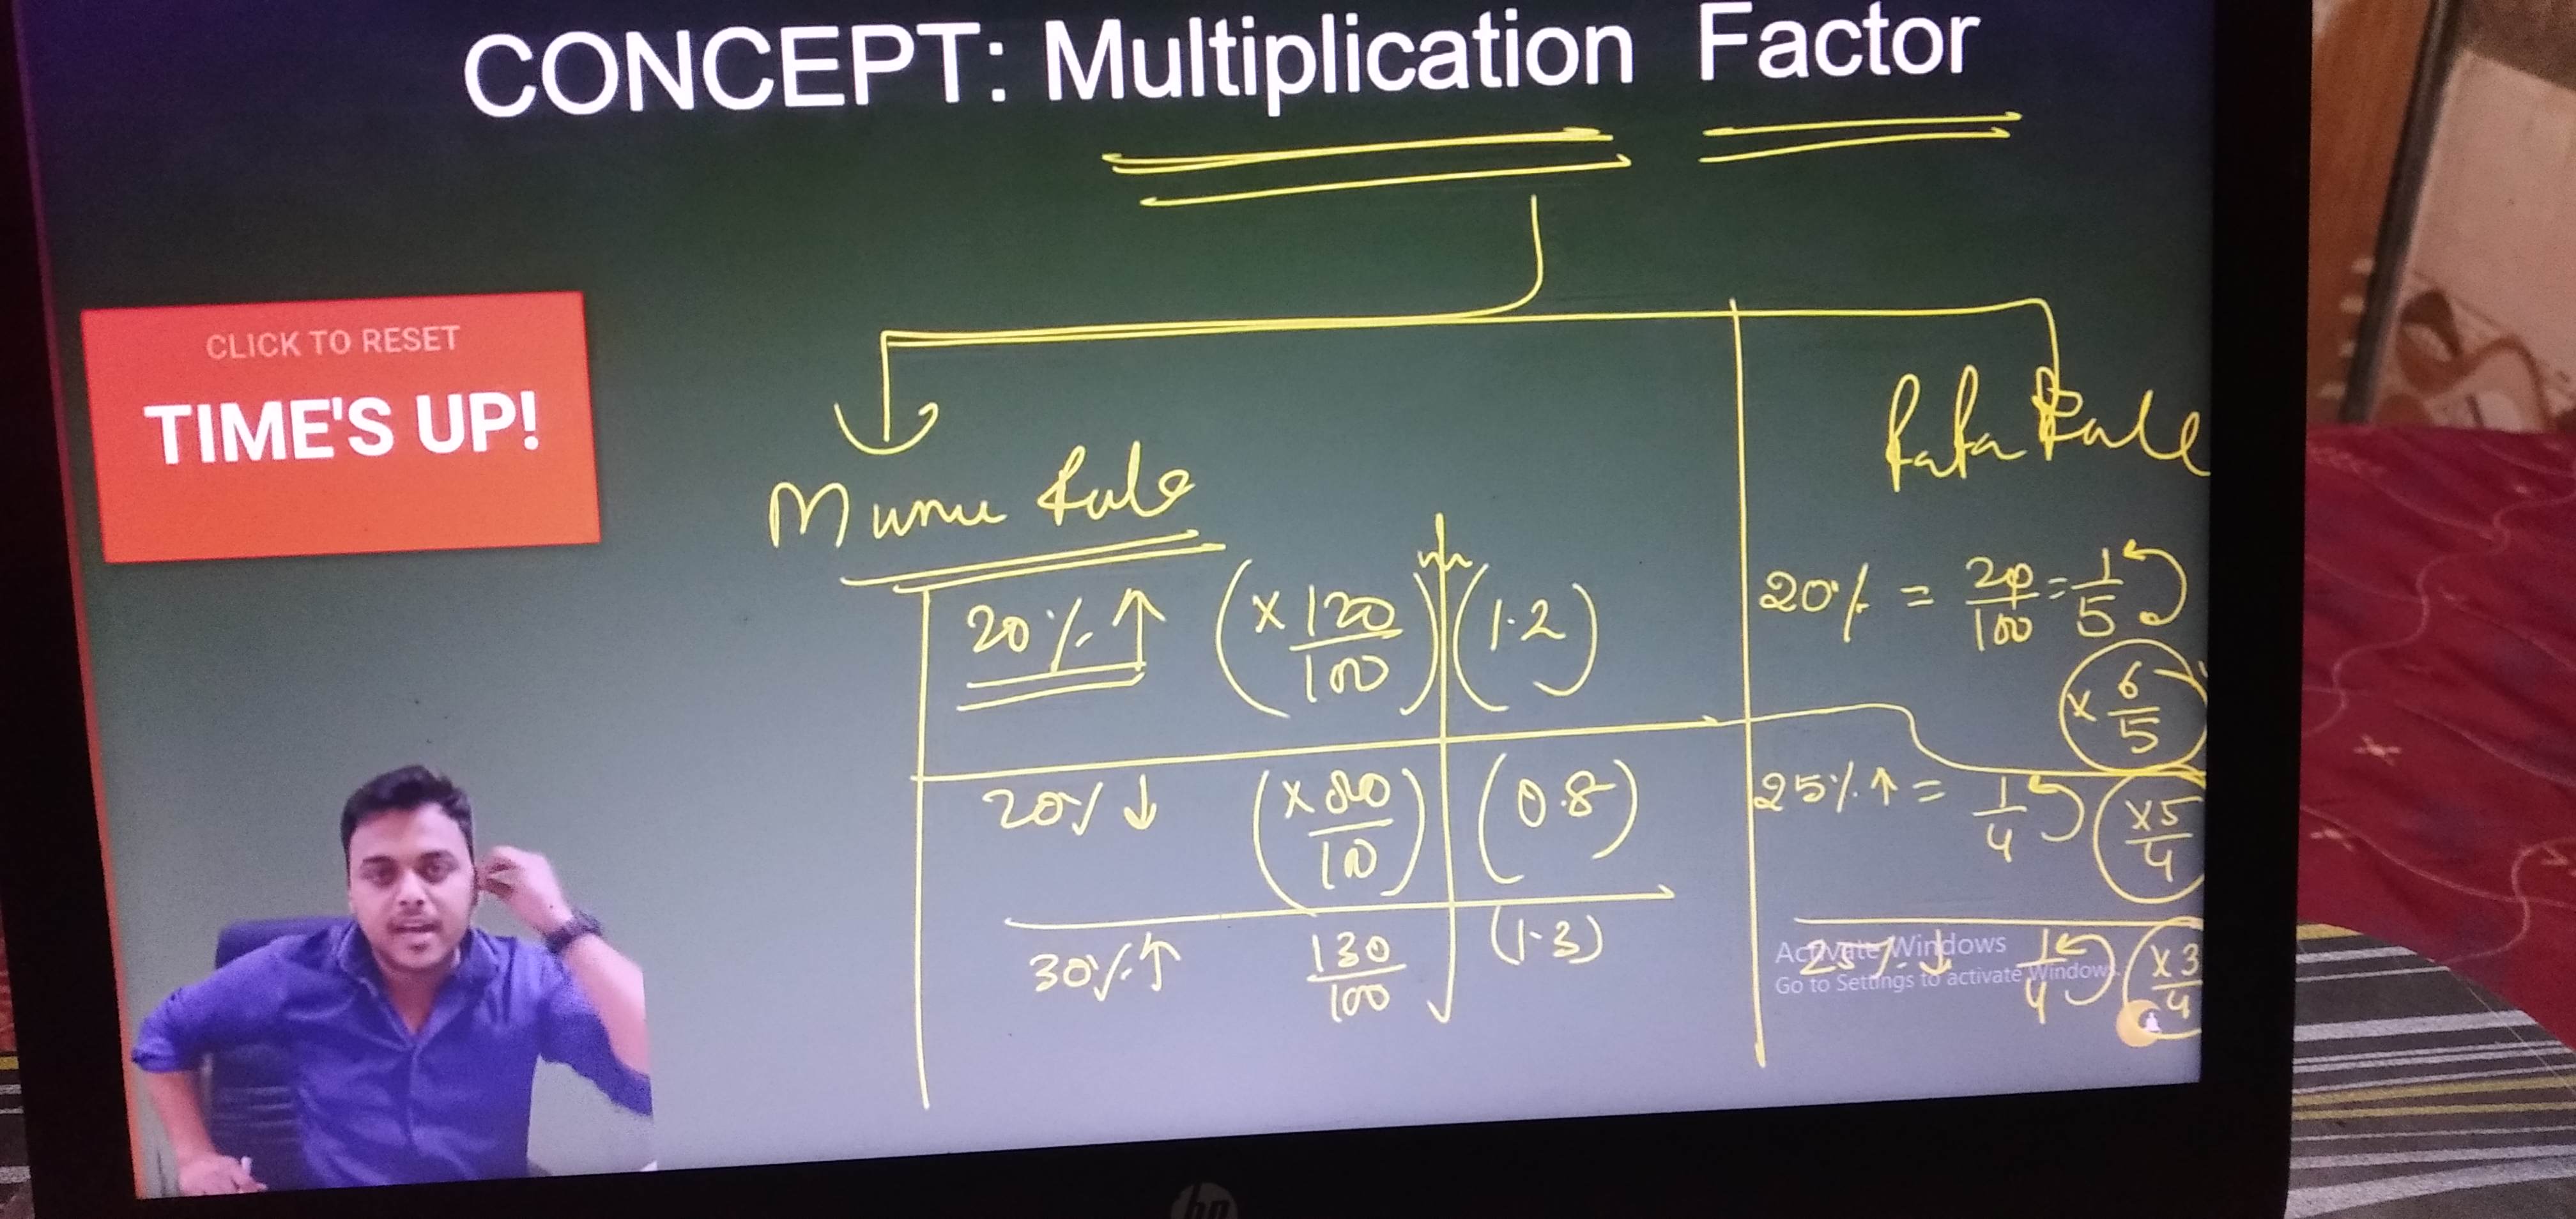 CONCEPT: Multiplication Factor
CLICK TO RESET
TIME'S UP!
Munu Rule
20% ↑ (× 120/100) (1.2)
20% ↓ (× 80/100) (0.8)
30% ↑ 130/100 (1.3)
PaPa Rule
20% = 20/100 = 1/5
× 6/5
25% ↑ = 1/4 ×5/4
25% ↓ 1/4 ×3/4
Activate Windows
Go to Settings to activate Windows.
hp